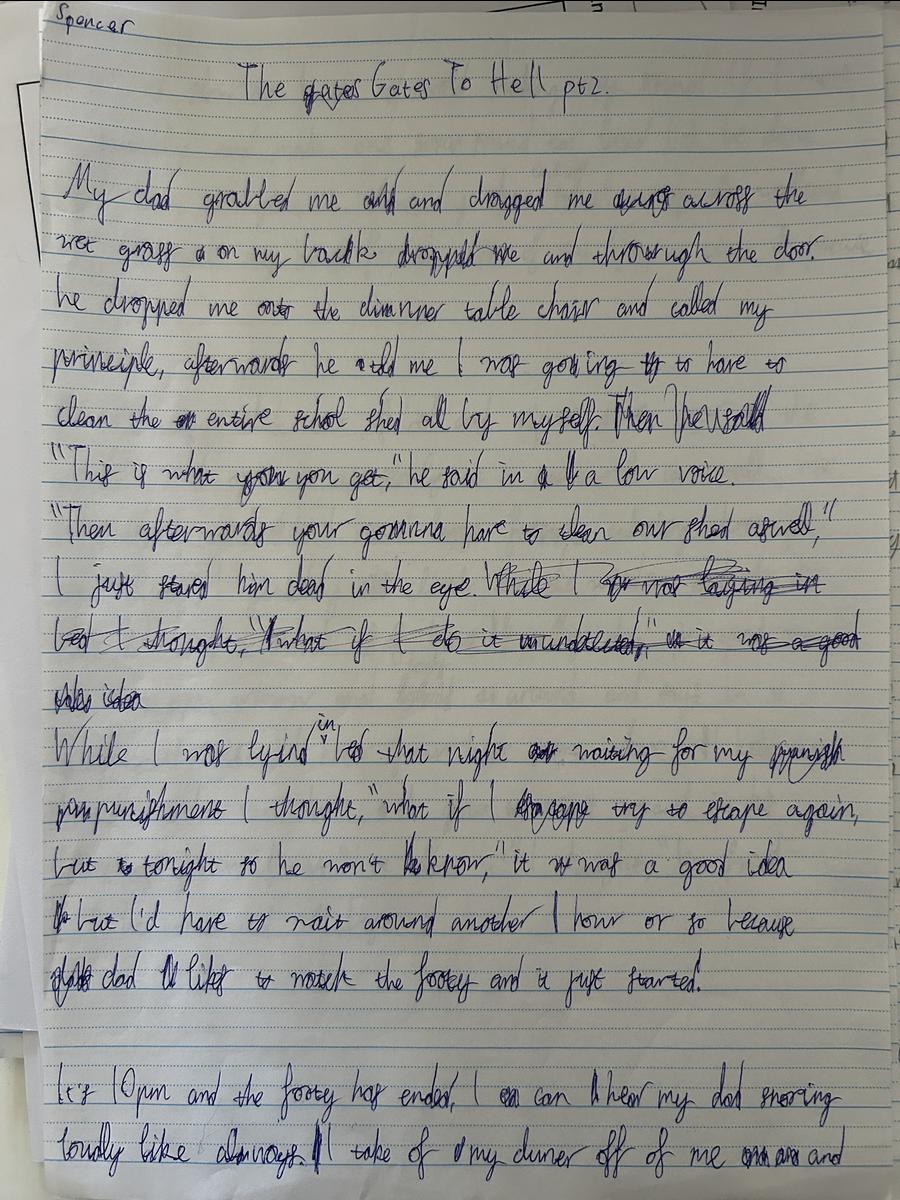 Spencer
The gates Gates To Hell pt2.
My dad grabbed me and and dragged me across the
wet grass on my back dropped me and through the door.
he dropped me onto the dinner table chair and called my
principle, afterwards he told me I was going to to have to
clean the entire school shed all by myself. Then
"This is what you you get," he said in a a low voice.
"Then afterwards your gonna have to clean our shed aswell,"
I just stared him dead in the eye. While I was laying in
bed I thought, "what if I do it it was a good
idea
While I was lying in bed that night waiting for my
punishment I thought, "what if I try to escape again,
but tonight so he won't know," it was a good idea
but I'd have to wait around another 1 hour or so because
dad likes to watch the footy and it just started.
It's 10pm and the footy has ended, I can hear my dad snoring
loudly like always. I take of my duner off of me and